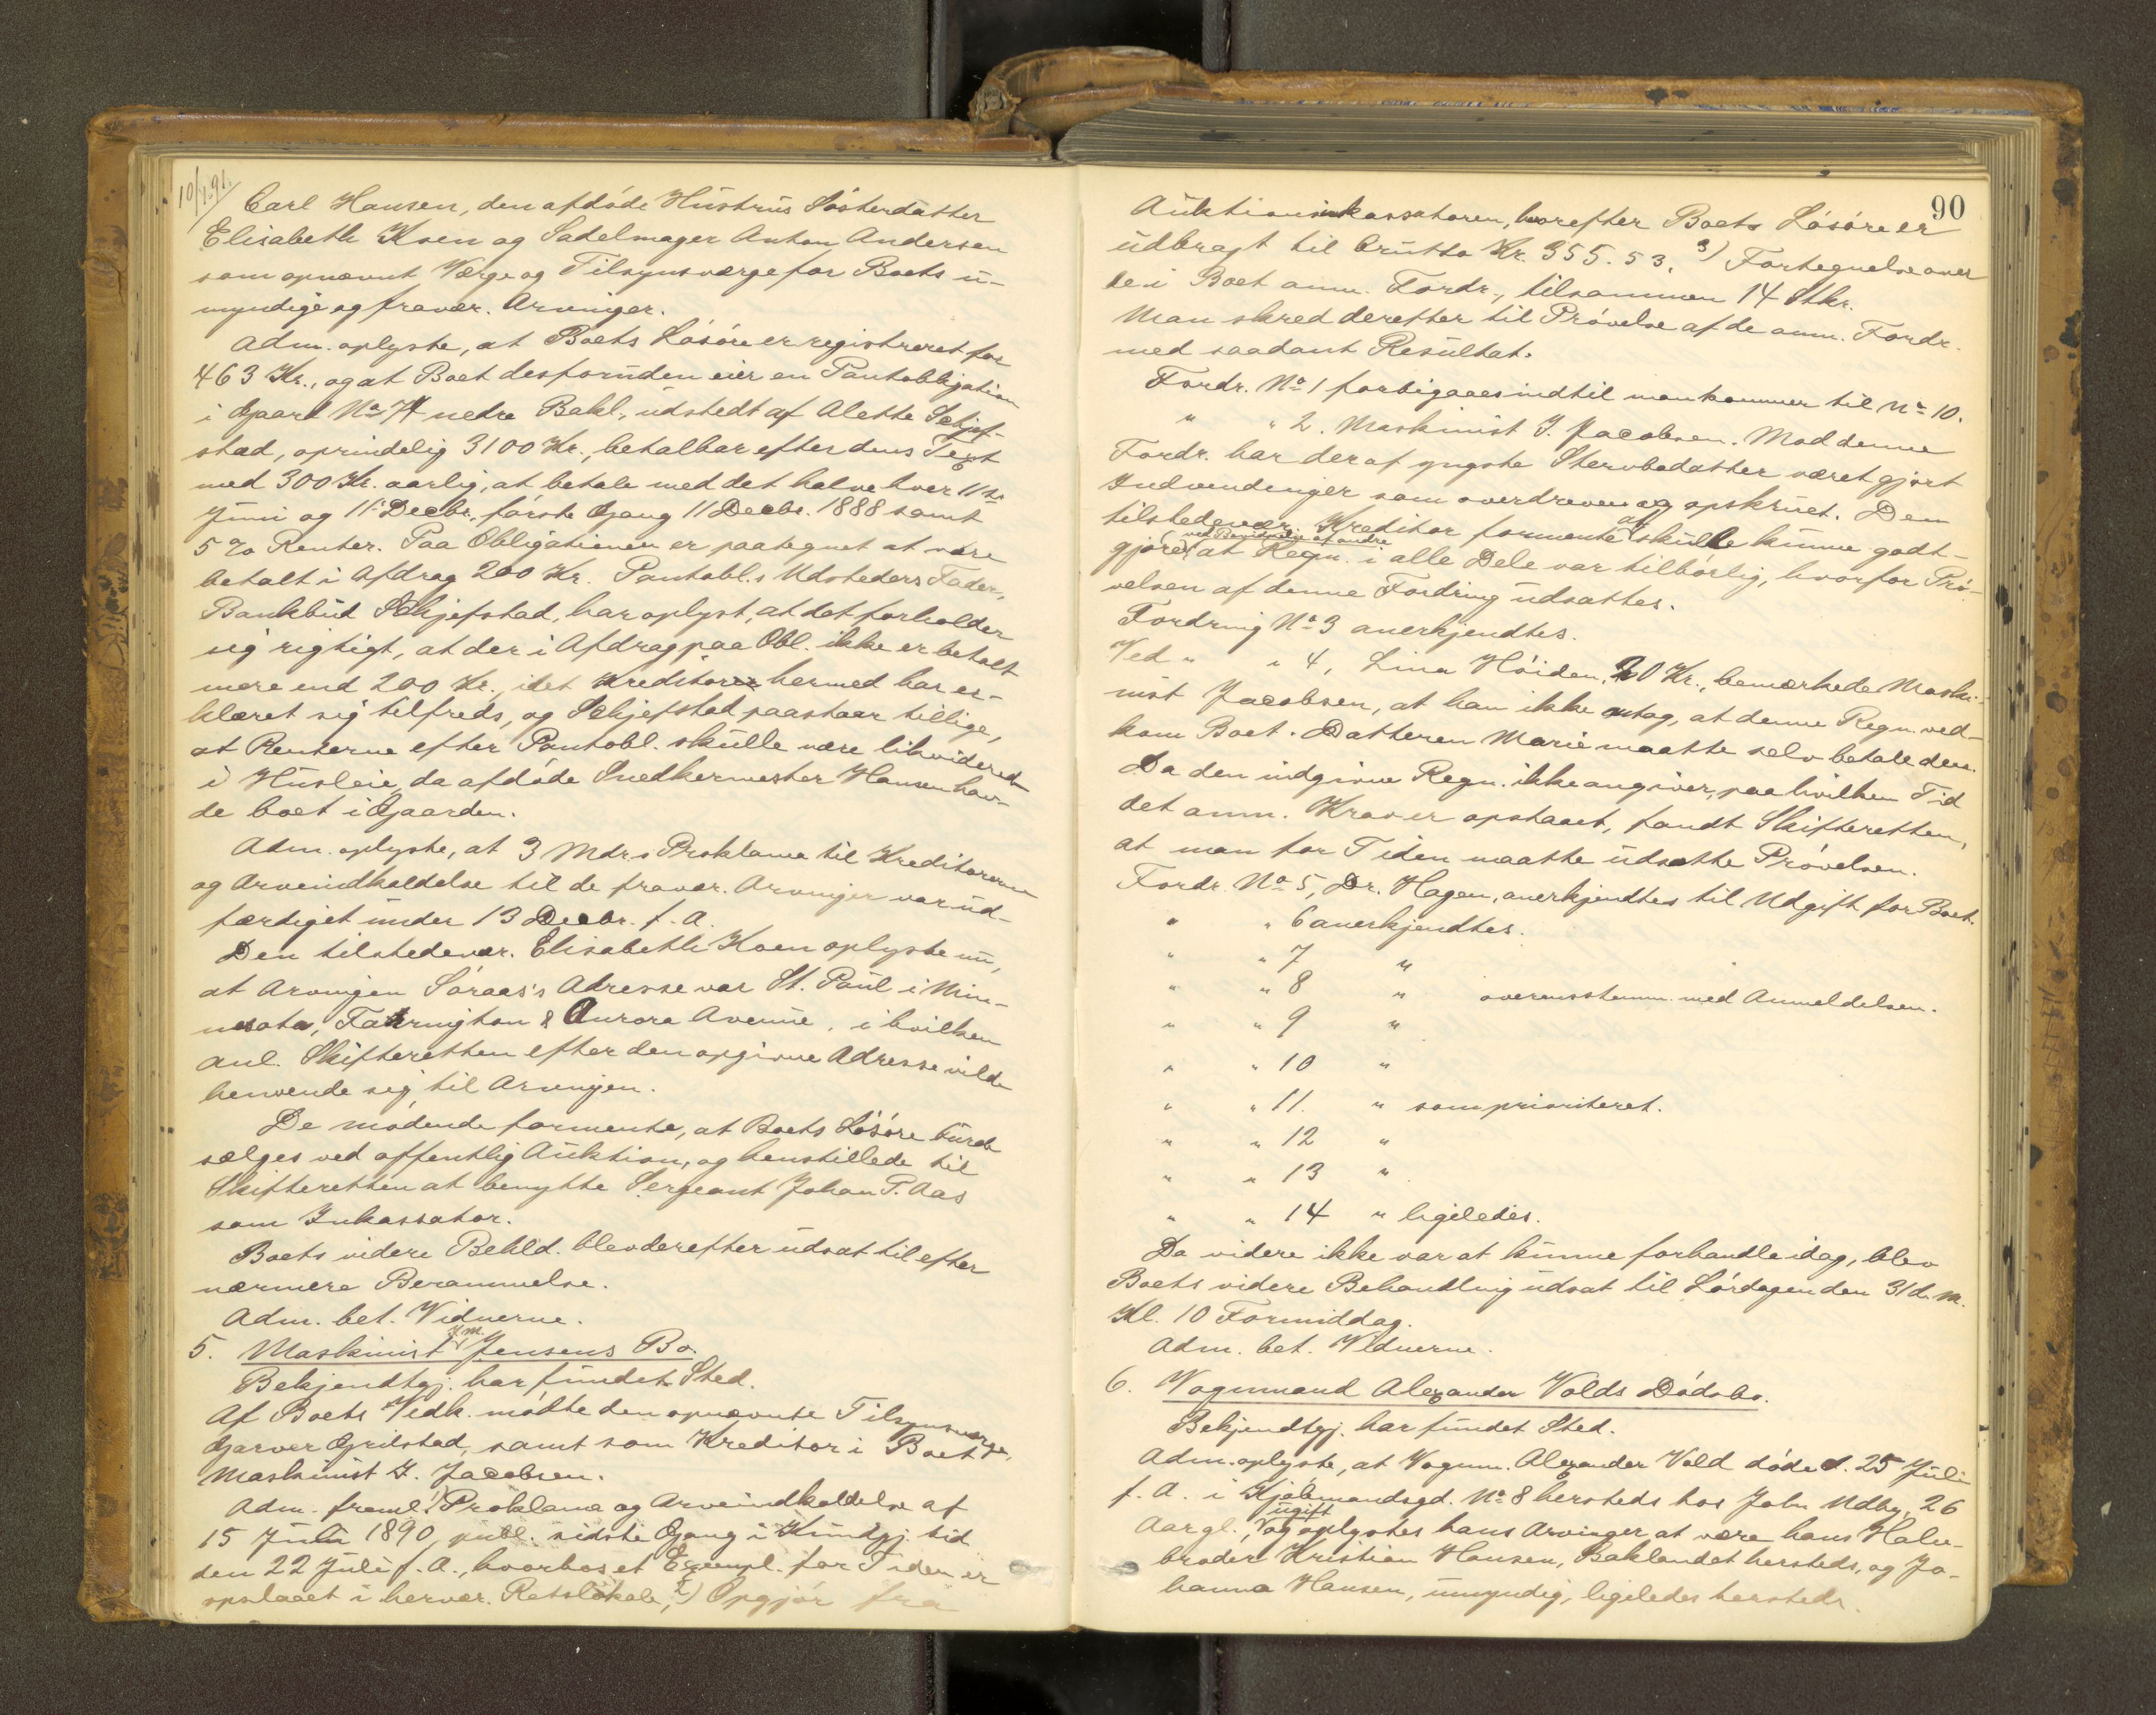 10/1.91.
Carl Hansen, den afdøde Hustrus Søsterdatter
Elisabeth Koen og Sadelmager Anton Andersen
som opnævnt Værge og Tilsynsværge for Boets u-
myndige og fravær. Arvinger.
Adm. oplyste, at Boets Løsøre er registreret for
463 Kr., og at Boet desforuden eier en Pantobligation
i Gaard No 74 nedre Bakl., udstedt af Alette Schjef-
stad, oprindelig 3100 Kr., betalbar efter dens Text
med 300 Kr. aarlig, at betale med det halve hver 11te
Juni og 11. Decbr., første Gang 11 Decbr. 1888 samt
5 % Renter. Paa Obligationen er paategnet at være
betalt i Afdrag 200 Kr. Pantobl.s Udsteders Fader,
Bankbud Schjefstad, har oplyst, at det forholder
sig rigtigt, at der i Afdrag paa Obl. ikke er betalt
mere end 200 Kr., idet Kreditor hermed har er-
klæret sig tilfreds, og Schjefstad paastaar tillige,
at Renterne efter Pantobl. skulle være likvideret
i Husleie, da afdøde Snedkermester Hansen hav-
de boet i Gaarden.
Adm. oplyste, at 3 Mdrs Proklama til Kreditorerne
og Arveindkaldelse til de fravær. Arvinger var ud-
færdiget under 13 Decbr. f. A.
Den tilstedevær. Elisabeth Koen oplyste nu,
at Arvingen Søraas's Adresse var St. Paul i Min-
nesota, Farrington & Aurora Avenue, i hvilken
Anl. Skifteretten efter den opgivne Adresse vilde
henvende sig til Arvingen.
De mødende formente, at Boets Løsøre burde
sælges ved offentlig Auktion, og henstillede til
Skifteretten at benytte Sergeant Johan P. Aas
som Inkassator.
Boets videre Behld. blev derefter udsat til efter
nærmere Berammelse.
Adm. bet. Vidnerne.
5. Maskinist J.M. Jensens Bo.
Bekjendtgj. har fundet Sted.
Af Boets Vedk. mødte den opnævnte Tilsynsværge,
Garver Grilstad, samt som Kreditor i Boet
Maskinist I. Jacobsen.
Adm. freml. 1) Proklama og Arveindkaldelse af
15 Juli 1890, publ. sidste Gang i Kundgj. tid
den 22 Juli f. A., hvorhos et Exempl. for Tiden er
opslaaet i hervær. Retslokale, 2) Opgjør fra
90
Auktionsinkassatoren, hvorefter Boets Løsøre er
udbragt til brutto Kr. 355.53, 3) Fortegnelse over
de i Boet anm. Fordr., tilsammen 14 Stkr.
Man skred derefter til Prøvelse af de anm. Fordr.
med saadant Resultat.
Fordr. No 1 forbigaaes indtil man kommer til No 10.
" " 2. Maskinist I. Jacobsen. Mod denne
Fordr. har der af yngste Stervbodatter været gjort
Indvendinger som overdreven og opskruet. Den
tilstedevær. Kreditor formente at skulle kunne godt-
gjøre ved Bevidnelse af andre at Regn. i alle Dele var tilbørlig, hvorfor Prø-
velsen af denne Fordring udsattes.
Fordring No 3 anerkjendtes.
Ved " " 4, Lina Høiden, 20 Kr., bemærkede Maski-
nist Jacobsen, at han ikke antog, at denne Regn. ved-
kom Boet. Datteren Marie maatte selv betale den.
Da den indgivne Regn. ikke angiver, paa hvilken Tid
det anm. Krav er opstaaet, fandt Skifteretten,
at man for Tiden maatte udsætte Prøvelsen.
Fordr. No 5, Dr. Hagen, anerkjendtes til Udgift for Boet.
" " 6 anerkjendtes.
" " 7 "
" " 8 " overensstemm. med Anmeldelsen.
" " 9 "
" " 10 "
" " 11. " som prioriteret.
" " 12 "
" " 13 "
" " 14 " ligeledes.
Da videre ikke var at kunne forhandle idag, blev
Boets videre Behandling udsat til Lørdagen den 31 d. M.
Kl. 10 Formiddag.
Adm. bet. Vidnerne.
6. Vognmand Alexander Volds Dødsbo.
Bekjendtgj. har fundet Sted.
Adm. oplyste, at Vognm. Alexander Vold døde d. 25 Juli
f. A. i Kjøbmandsgd. No 8 hersteds hos John Udby, 26
Aar gl. ugift og oplystes hans Arvinger at være hans Halv-
broder Kristian Hansen, Baklandet hersteds, og Jo-
hanna Hansen, umyndig, ligeledes hersteds.